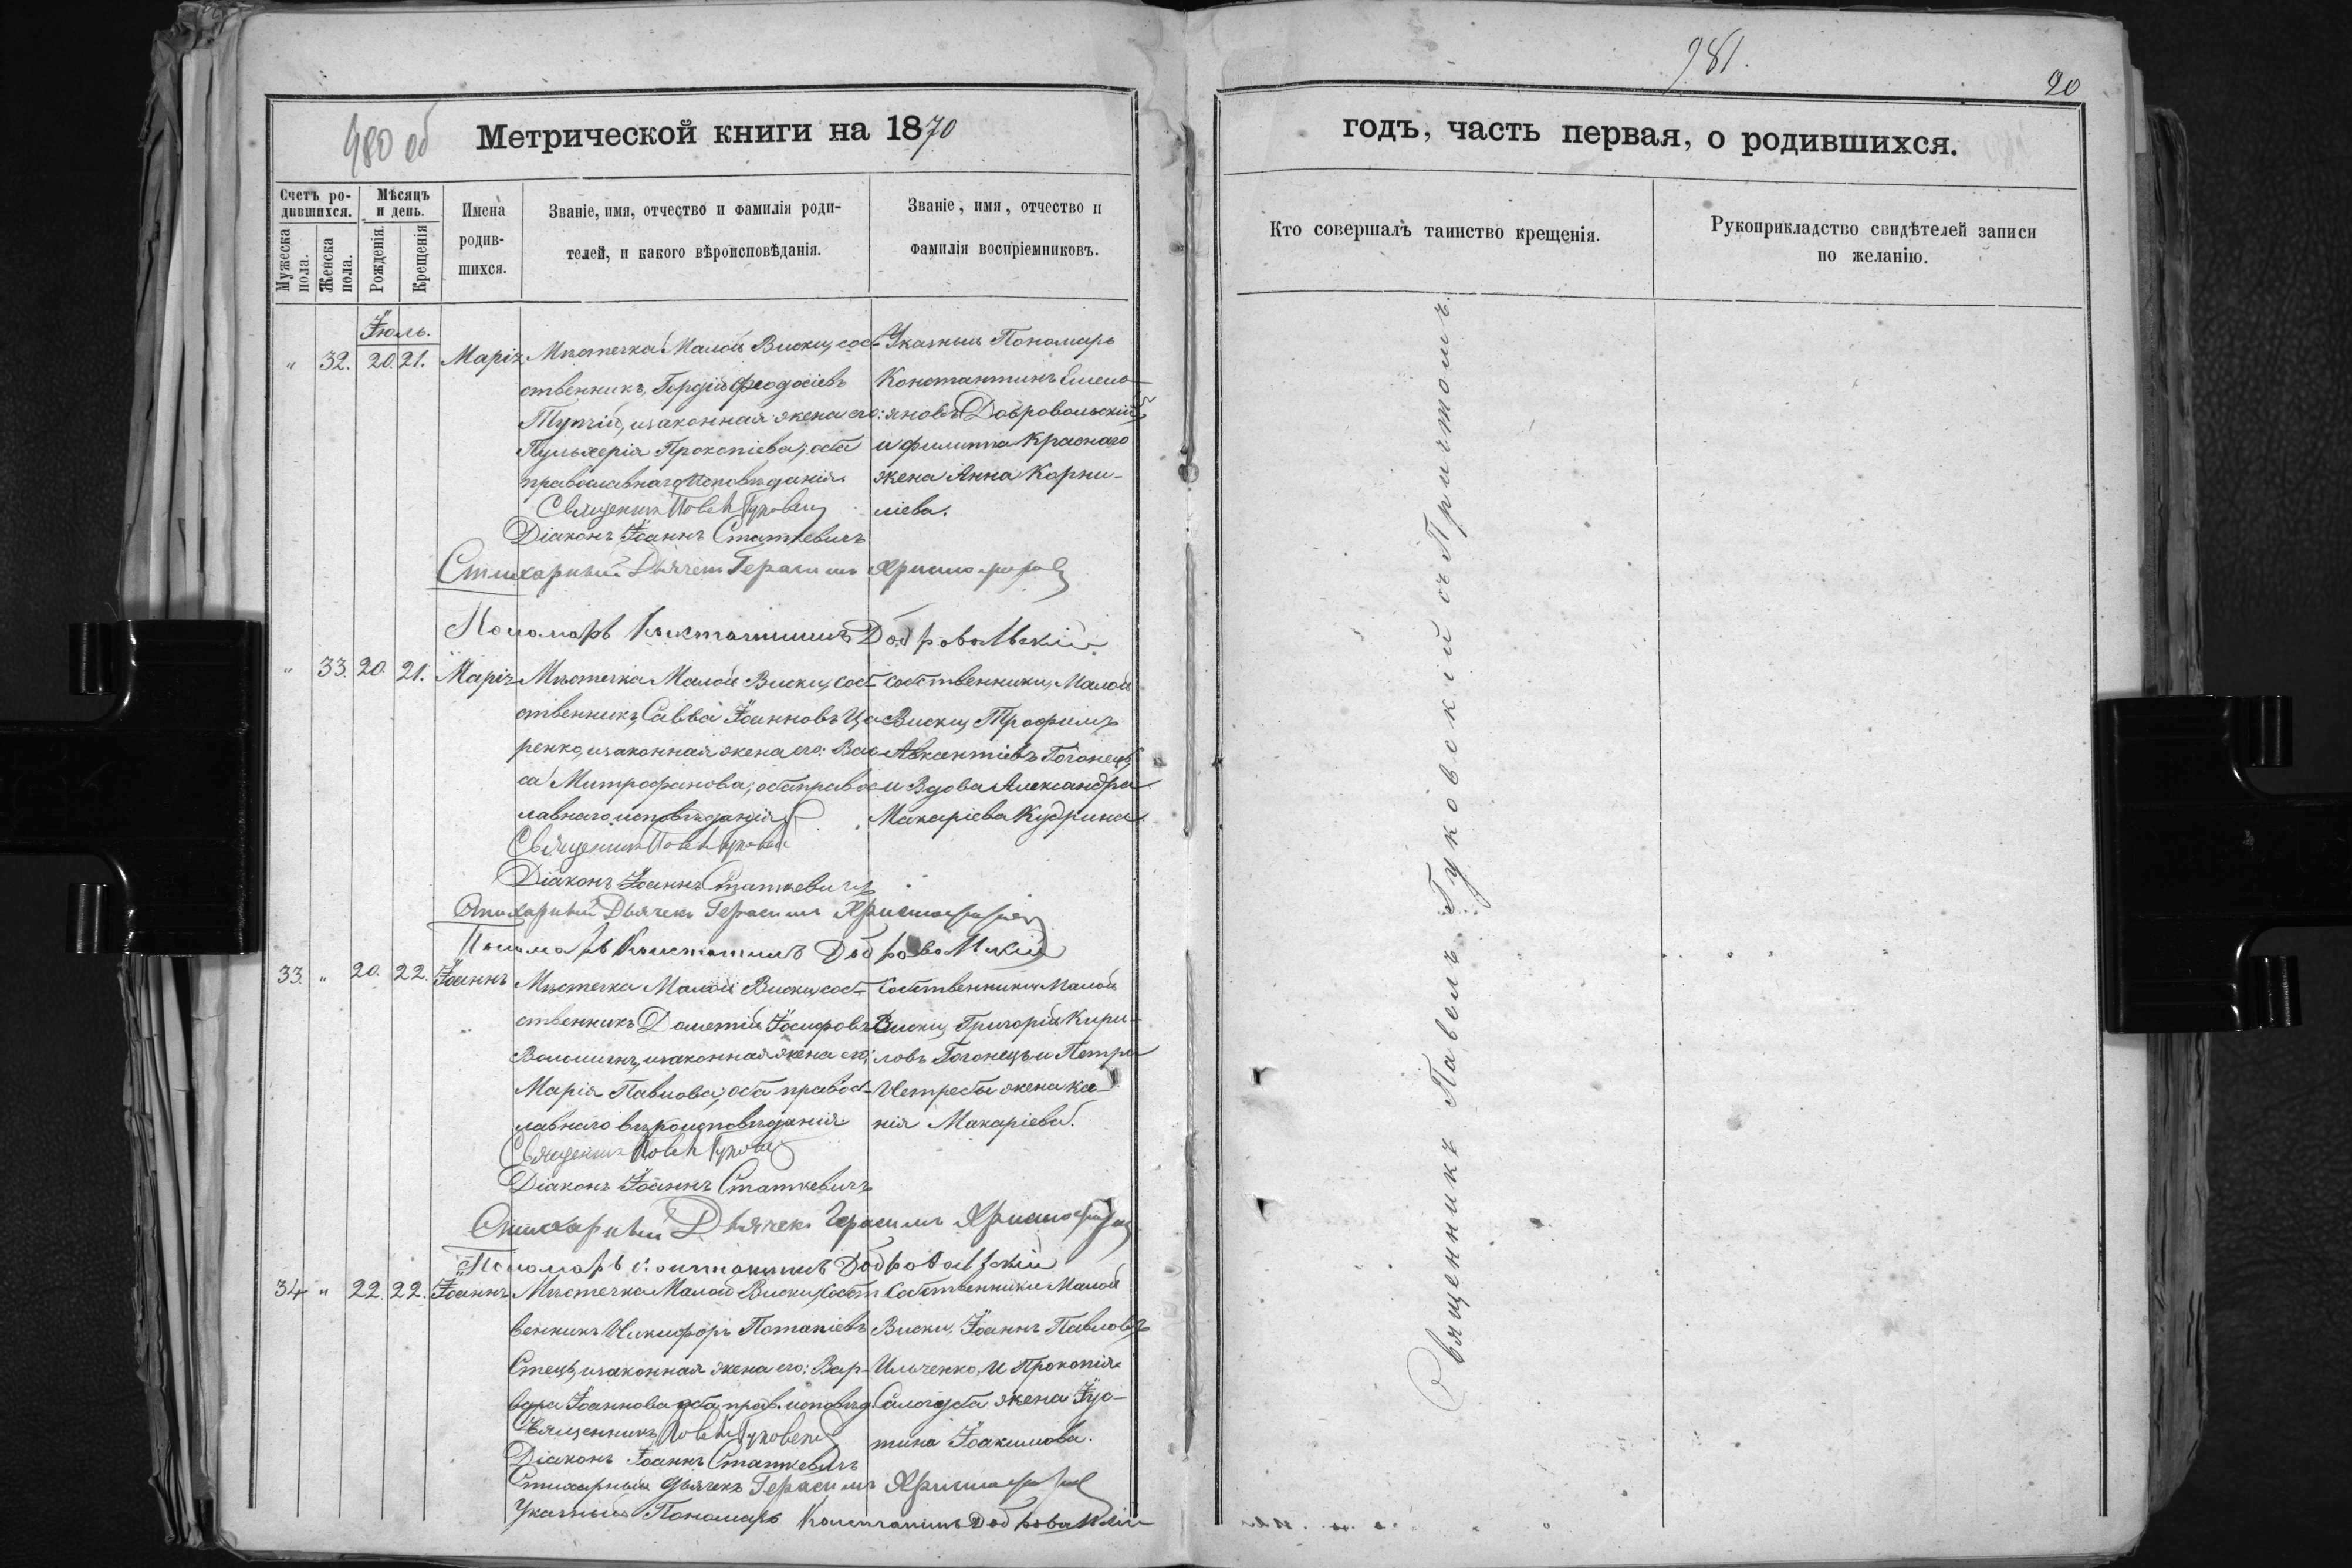 480 об
Метрической книги на 1870
Счетъ ро-
дившихся.
Мѣсяцъ
и день.
Мужеска
пола.
Женска
пола.
Рожденія.
Крещенія
Имена
родив-
шихся.
Званіе, имя, отчество и фамилія роди-
телей, и какого вѣроисповѣданія.
Званіе, имя, отчество и
фамилія воспріемниковъ.
Іюль.
" 32. 20. 21. Марія Мѣстечка Малой Виски, соб- Указный Пономарь
ственникъ, Гордій Феодосіевъ Константинъ Емель-
изаконная жена его: яновъ Добровольскій,
Пульхерія Прокопіева; оба и Филиппа Краснаго
православнаго исповѣданія жена Анна Корни-
Священникъ Павелъ Гуковскій ліева.
Діаконъ Іоаннъ Статкевичъ
Стихарный Дьячекъ Герасимъ
Пономарь Константинъ Добровольскій
" 33. 20. 21. Марія Мѣстечка Малой Виски, соб- собственники, Малой
ственникъ, Савва Іоанновъ Ца- Виски, Трофимъ
ренко, изаконная жена его: Вас- Авксентіевъ Гогонецъ,
са Митрофанова; оба правос- и Вдова Александра
лавнаго исповѣданія Макаріева Кудрина
Священникъ Павелъ Гуковскій
Діаконъ Іоаннъ Статкевичъ
Стихарный Дьячекъ Герасимъ
Пономарь Константинъ Добровольскій
33. " 20. 22. Іоаннъ Мѣстечка Малой Виски, соб- Собственники Малой
ственникъ Дометій Іосифовъ Виски, Григорій Кири-
изаконная жена его; ловъ Гогонецъ и Петра
Марія Павлова; оба правос- жена Ксе-
лавнаго вѣроисповѣданія нія Макаріева.
Священникъ Павелъ Гуковскій
Діаконъ Іоаннъ Статкевичъ
Стихарный Дьячекъ Герасимъ
Пономарь Константинъ Добровольскій
34 " 22. 22. Іоаннъ Мѣстечка Малой Виски, собст Собственники Малой
венникъ Никифоръ Потапіевъ Виски, Іоаннъ Павловъ
Стецъ, изаконная жена его: Вар- Ильченко, и Прокопія
вара Іоаннова оба прав. исповѣд. жена Іус-
Священникъ Павелъ Гуковскій тина Іоакимова.
Діаконъ Іоаннъ Статкевичъ
Стихарный дьячекъ Герасимъ
Указный Пономарь Константинъ Добровольскій
981.
20
годъ, часть первая, о родившихся.
Кто совершалъ таинство крещенія.
Рукоприкладство свидѣтелей записи
по желанію.
Священникъ Павелъ Гуковскій съ Причтомъ.